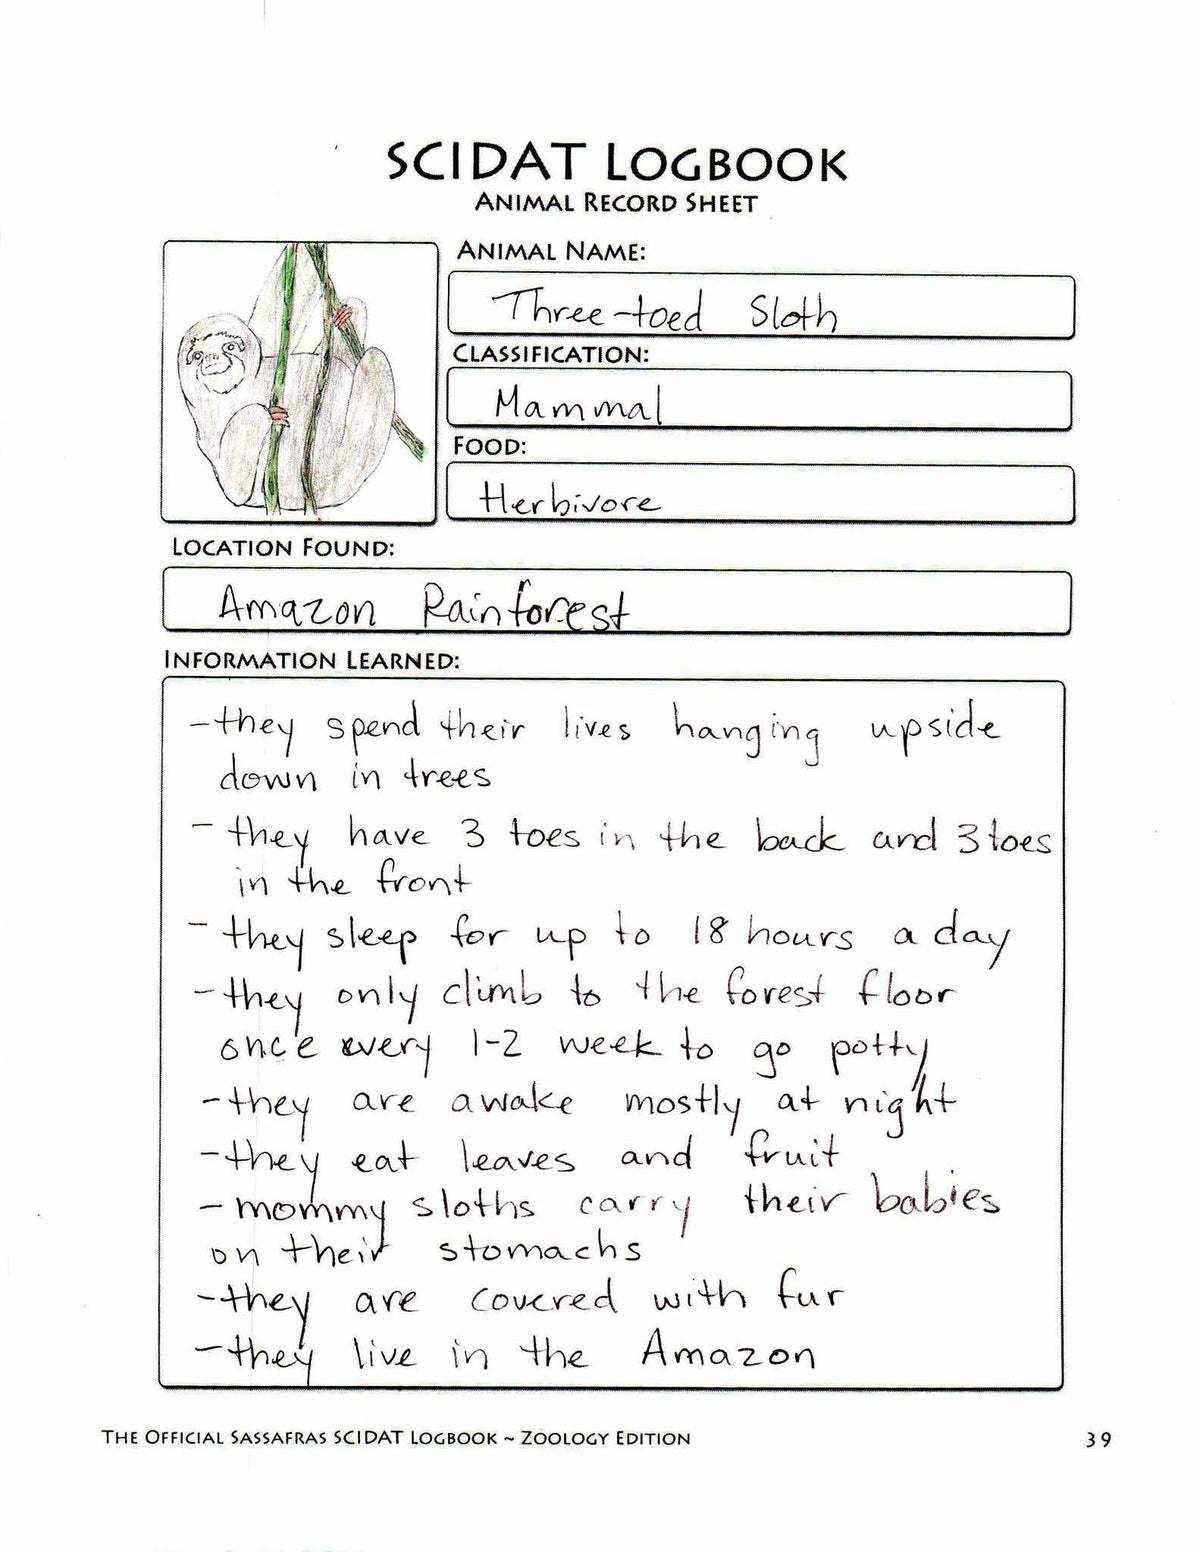 SCIDAT LOGBOOK
ANIMAL RECORD SHEET
ANIMAL NAME:
Three-toed Sloth
CLASSIFICATION:
Mammal
FOOD:
Herbivore
LOCATION FOUND:
Amazon Rainforest
INFORMATION LEARNED:
- they spend their lives hanging upside
down in trees
- they have 3 toes in the back and 3 toes
in the front
- they sleep for up to 18 hours a day
- they only climb to the forest floor
once every 1-2 week to go potty
- they are awake mostly at night
- they eat leaves and fruit
- mommy sloths carry their babies
on their stomachs
- they are covered with fur
- they live in the Amazon
THE OFFICIAL SASSAFRAS SCIDAT LOGBOOK ~ ZOOLOGY EDITION 39